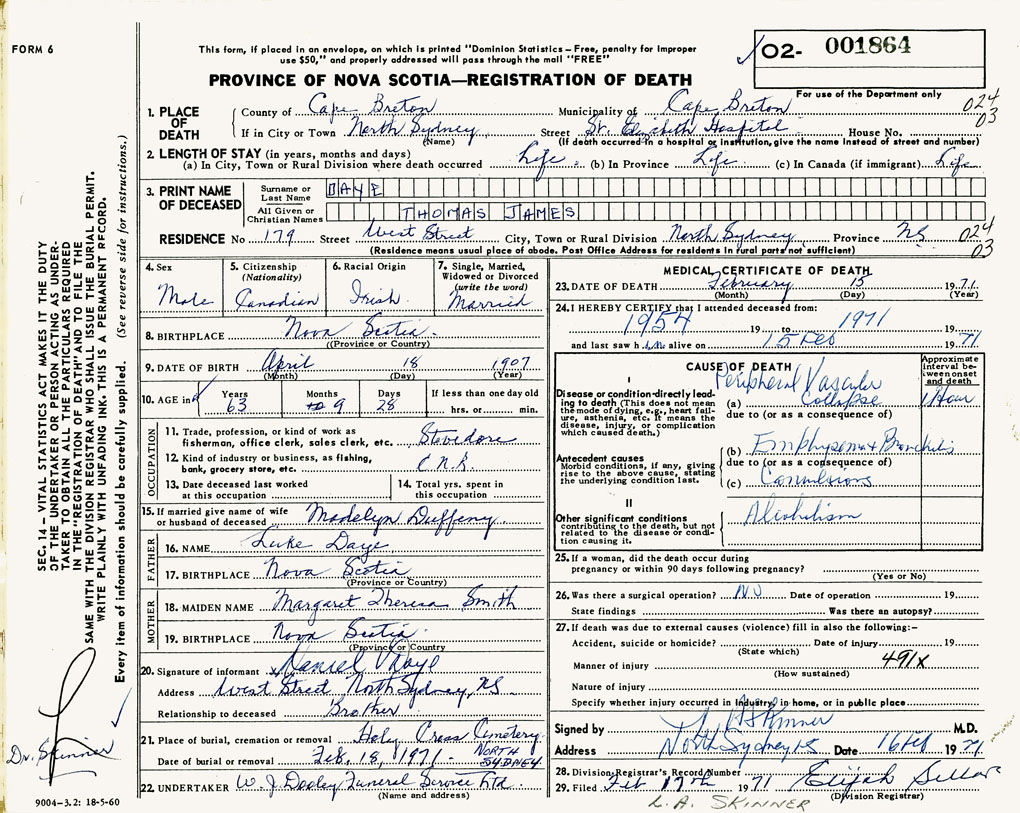 FORM 6
This form, if placed in an envelope, on which is printed "Dominion Statistics – Free, penalty for improper
use $50," and properly addressed will pass through the mail "FREE"
PROVINCE OF NOVA SCOTIA—REGISTRATION OF DEATH
02- 001864
For use of the Department only
024
03
1. PLACE OF DEATH
County of Cape Breton Municipality of Cape Breton
If in City or Town North Sydney Street St. Elizabeth Hospital House No.
(Name) (If death occurred in a hospital or institution, give the name instead of street and number)
2. LENGTH OF STAY (in years, months and days)
(a) In City, Town or Rural Division where death occurred Life (b) In Province Life (c) In Canada (if immigrant) Life
3. PRINT NAME OF DECEASED
Surname or Last Name DAYE
All Given or Christian Names THOMAS JAMES
RESIDENCE No 179 Street West Street City, Town or Rural Division North Sydney Province NS
024
03
(Residence means usual place of abode. Post Office Address for residents in rural parts not sufficient)
4. Sex
Male
5. Citizenship (Nationality)
Canadian
6. Racial Origin
Irish
7. Single, Married, Widowed or Divorced (write the word)
Married
8. BIRTHPLACE Nova Scotia
(Province or Country)
9. DATE OF BIRTH April 18 1907
(Month) (Day) (Year)
10. AGE in Years 63 Months 9 Days 28 If less than one day old hrs. or min.
OCCUPATION
11. Trade, profession, or kind of work as
fisherman, office clerk, sales clerk, etc. Stevedore
12. Kind of industry or business, as fishing,
bank, grocery store, etc. C.N.R.
13. Date deceased last worked
at this occupation
14. Total yrs. spent in
this occupation
15. If married give name of wife
or husband of deceased Madelyn Duffeny
FATHER
16. NAME Luke Daye
17. BIRTHPLACE Nova Scotia
(Province or Country)
MOTHER
18. MAIDEN NAME Margaret Theresa Smith
19. BIRTHPLACE Nova Scotia
(Province or Country)
20. Signature of informant Daye
Address West Street, North Sydney, NS
Relationship to deceased Brother
21. Place of burial, cremation or removal Holy Cross Cemetery
NORTH SYDNEY
Date of burial or removal Feb. 18, 1971
22. UNDERTAKER W. J. Dooley Funeral Service Ltd.
(Name and address)
MEDICAL CERTIFICATE OF DEATH
23. DATE OF DEATH February 15 1971
(Month) (Day) (Year)
24. I HEREBY CERTIFY that I attended deceased from:
1954 19 to 1971 19
and last saw him alive on 15 Feb 1971
CAUSE OF DEATH
Approximate interval between onset and death
I
Disease or condition directly leading to death (This does not mean the mode of dying, e.g., heart failure, asthenia, etc. It means the disease, injury, or complication which caused death.)
Peripheral Vascular
(a) Collapse 1 Hour
due to (or as a consequence of)
Antecedent causes
Morbid conditions, if any, giving rise to the above cause, stating the underlying condition last.
(b) Emphysema & Bronchitis
due to (or as a consequence of)
(c) Convulsions
II
Other significant conditions
contributing to the death, but not related to the disease or condition causing it.
Alcoholism
25. If a woman, did the death occur during
pregnancy or within 90 days following pregnancy?
(Yes or No)
26. Was there a surgical operation? NO Date of operation 19
State findings Was there an autopsy?
27. If death was due to external causes (violence) fill in also the following:-
Accident, suicide or homicide? Date of injury 19
(State which)
Manner of injury 491X
(How sustained)
Nature of injury
Specify whether injury occurred in industry, in home, or in public place
Signed by Skinner M.D.
Address North Sydney NS Date 16 Feb 1971
28. Division Registrar's Record Number
29. Filed Feb 17th 1971 Elijah
(Division Registrar)
L.A. SKINNER
SEC. 14 – VITAL STATISTICS ACT MAKES IT THE DUTY
OF THE UNDERTAKER OR PERSON ACTING AS UNDER-
TAKER TO OBTAIN ALL THE PARTICULARS REQUIRED
IN THE "REGISTRATION OF DEATH" AND TO FILE THE
SAME WITH THE DIVISION REGISTRAR WHO SHALL ISSUE THE BURIAL PERMIT.
WRITE PLAINLY WITH UNFADING INK. THIS IS A PERMANENT RECORD.
Every item of information should be carefully supplied. (See reverse side for instructions.)
Dr. Skinner
9004-3.2: 18-5-60